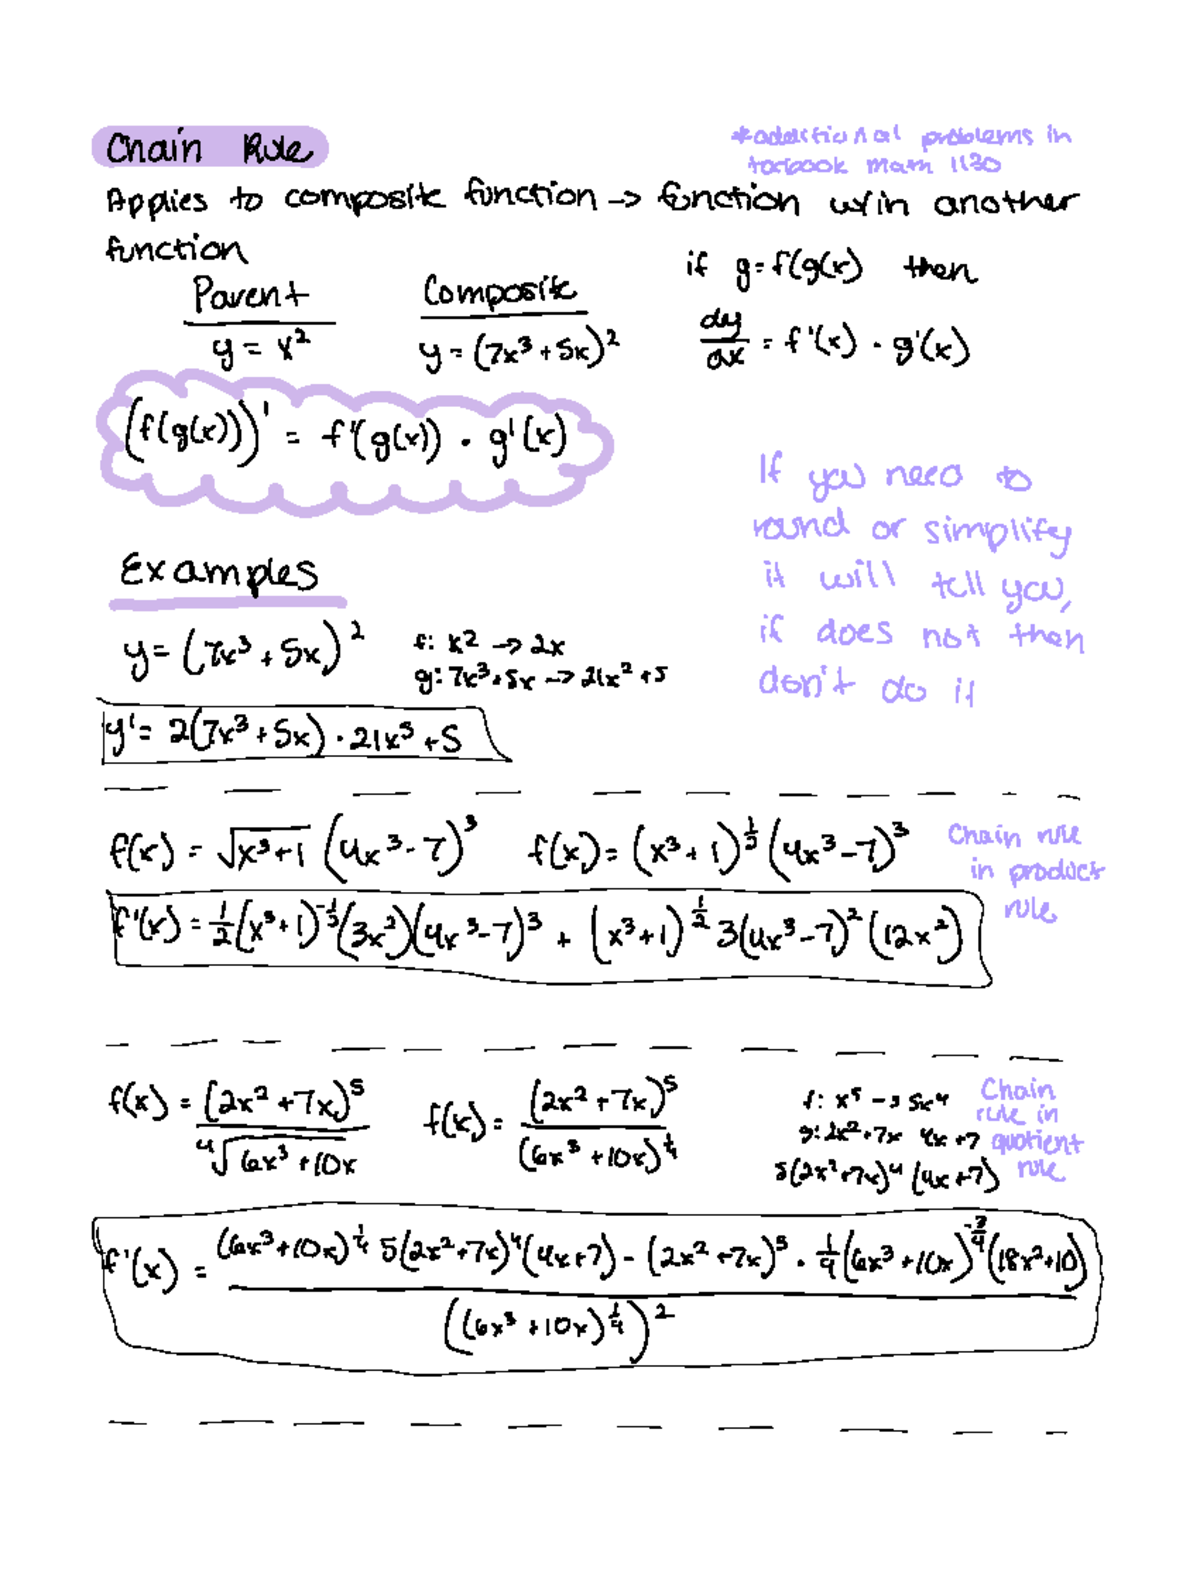 Chain Rule
*additional problems in
textbook Math 1130
Applies to composite function -> function w/in another
function
if y=f(g(x) then
Parent
Composite
y = x²
y = (7x³+5x)²
dy/dx = f'(x) · g'(x)
(f(g(x)))' = f'(g(x)) · g'(x)
If you need to
round or simplify
it will tell you,
if does not then
don't do it
Examples
y = (7x³+5x)²
f: x² -> 2x
g: 7x³+5x -> 21x²+5
y' = 2(7x³+5x) · 21x³+5
f(x) = √x³+1 (4x³-7)³
f(x) = (x³+1)^1/2 (4x³-7)³
Chain rule
in product
rule
f'(x) = 1/2(x³+1)^-1/2(3x²)(4x³-7)³ + (x³+1)^1/2 3(4x³-7)²(12x²)
f(x) = (2x²+7x)⁵/⁴√6x³+10x
f(x) = (2x²+7x)⁵/(6x³+10x)^1/4
f: x⁵ -> 5x⁴
g: 2x²+7x 4x+7
5(2x²+7x)⁴(4x+7)
Chain
rule in
quotient
rule
f'(x) = (6x³+10x)^1/4 5(2x²+7x)⁴(4x+7) - (2x²+7x)⁵ · 1/4(6x³+10x)^-3/4(18x²+10)
((6x³+10x)^1/4)²